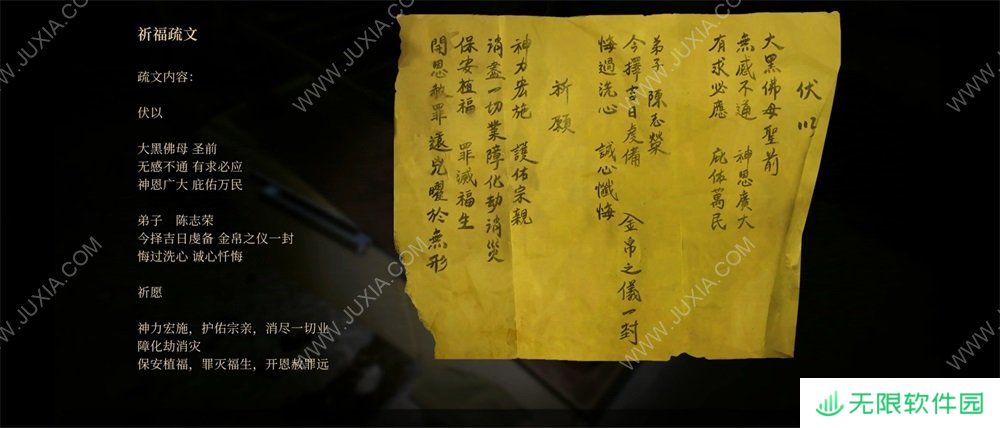 祈福疏文
疏文内容：
伏以
大黑佛母 圣前
无感不通 有求必应
神恩广大 庇佑万民
弟子 陈志荣
今择吉日虔备 金帛之仪一封
悔过洗心 诚心忏悔
祈愿
神力宏施，护佑宗亲，消尽一切业
障化劫消灾
保安植福，罪灭福生，开恩赦罪远
伏以
大黑佛母聖前
無感不通 神恩廣大
有求必應 庇佑萬民
弟子 陳志榮
今擇吉日虔備 金帛之儀一封
悔過洗心 誠心懺悔
祈願
神力宏施 護佑宗親
消盡一切業障化劫消災
保安植福 罪滅福生
開恩赦罪遠兇曜於無形
WWW.JUXIA.COM
WWW.JUXIA.COM
WWW.JUXIA.COM
WWW.JUXIA.COM
WWW.JUXIA.COM
WWW.JUXIA.COM
WWW.JUXIA.COM
无限软件园